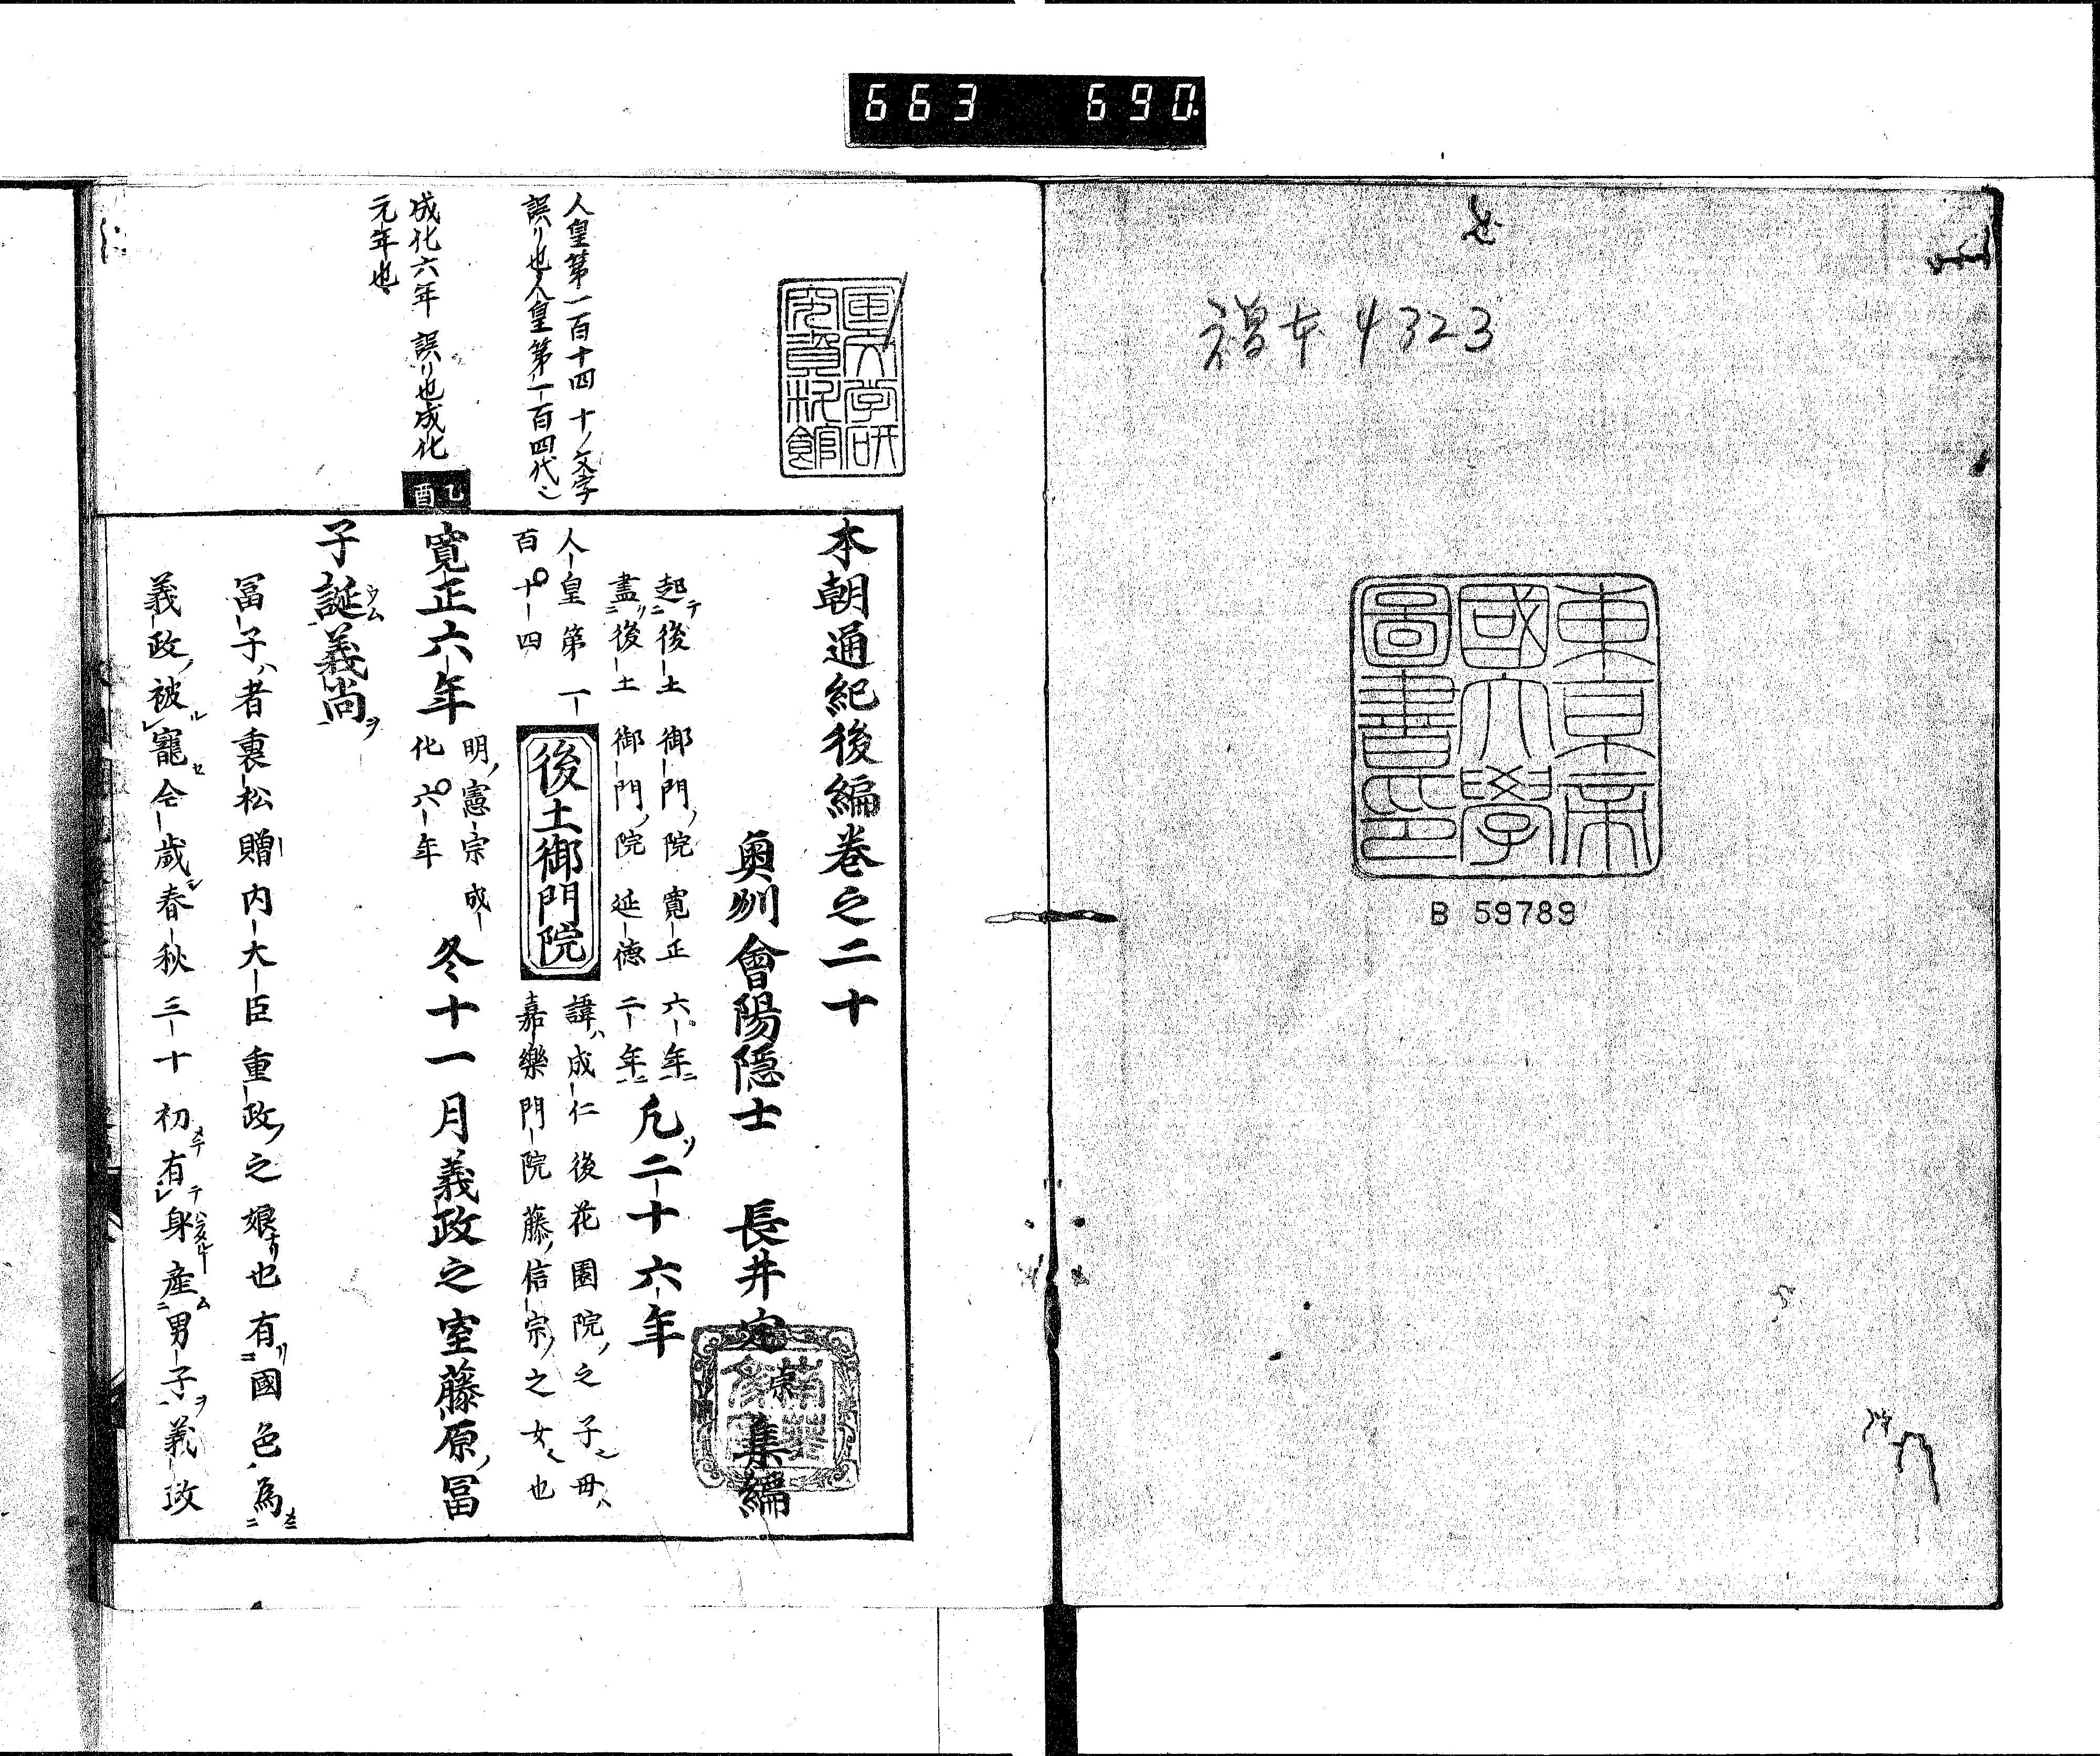 663 690
禔本4323
東京帝
國大學
圖書印
B 59789
本朝通紀後編卷之二十
奥州會陽隱士 長井定宗 集編
起後土御門院寛正六年
盡後土御門院延德二年
凢二十六年
人皇第一
百十四
後土御門院
諱ハ成仁後花園院ノ之子母ハ
嘉樂門院藤ノ信宗ノ之女也
人皇第一百十四 十ノ文字
誤リ也人皇第一百四代
乙酉
寛正六年
明ノ憲宗成
化六年
冬十一月義政之室藤原ノ冨
子誕義尚ヲ
成化六年 誤リ也成化
元年也
冨子ハ者裏松贈内大臣重政ノ之娘也有國色為
義政ノ被寵今歳春秋三十初有身産男子ヲ義政